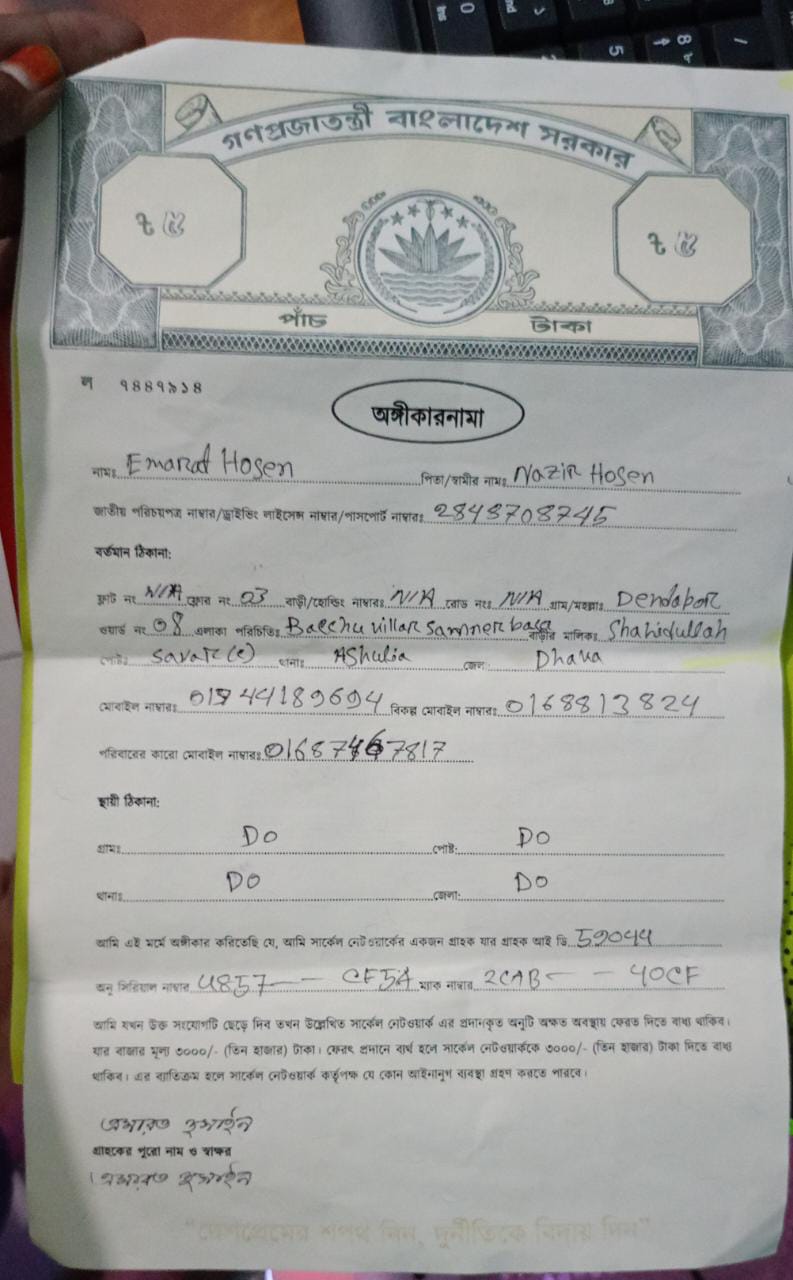 গণপ্রজাতন্ত্রী বাংলাদেশ সরকার
৳ ৫ ৳ ৫
পাঁচ টাকা
ল ৭৪৪৭৯১৪
অঙ্গীকারনামা
নামঃ Emarat Hosen পিতা/স্বামীর নামঃ Nazir Hosen
জাতীয় পরিচয়পত্র নাম্বার/ড্রাইভিং লাইসেন্স নাম্বার/পাসপোর্ট নাম্বারঃ 2848708745
বর্তমান ঠিকানা:
ফ্লাট নং N/A ফ্লোর নং 03 বাড়ী/হোল্ডিং নাম্বারঃ N/A রোড নংঃ N/A গ্রাম/মহল্লাঃ Dendabor
ওয়ার্ড নং 08 এলাকা পরিচিতিঃ Bacchu villar samner basa বাড়ীর মালিকঃ Shahidullah
পোষ্টঃ Savar (c) থানাঃ Ashulia জেলা: Dhaka
মোবাইল নাম্বারঃ 01744189694 বিকল্প মোবাইল নাম্বারঃ 0168813824
পরিবারের কারো মোবাইল নাম্বারঃ
স্থায়ী ঠিকানা:
গ্রামঃ DO পোষ্ট: DO
থানাঃ DO জেলা: DO
আমি এই মর্মে অঙ্গীকার করিতেছি যে, আমি সার্কেল নেটওয়ার্কের একজন গ্রাহক যার গ্রাহক আই ডি 59044
অনু সিরিয়াল নাম্বার 4857-- CF5A ম্যাক নাম্বার 2CAB- - 40CF
আমি যখন উক্ত সংযোগটি ছেড়ে দিব তখন উল্লেখিত সার্কেল নেটওয়ার্ক এর প্রদানকৃত অনুটি অক্ষত অবস্থায় ফেরত দিতে বাধ্য থাকিব।
যার বাজার মূল্য ৩০০০/- (তিন হাজার) টাকা। ফেরৎ প্রদানে ব্যর্থ হলে সার্কেল নেটওয়ার্ককে ৩০০০/- (তিন হাজার) টাকা দিতে বাধ্য
থাকিব। এর ব্যতিক্রম হলে সার্কেল নেটওয়ার্ক কর্তৃপক্ষ যে কোন আইনানুগ ব্যবস্থা গ্রহণ করতে পারবে।
এমারত হুসাইন
গ্রাহকের পুরো নাম ও স্বাক্ষর
এমারত হুসাইন
"দেশপ্রেমের শপথ নিন, দুর্নীতিকে বিদায় দিন"